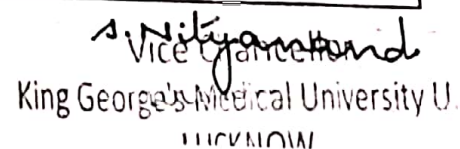 S. Nityanand
Vice Chancellor
King George's Medical University U.
LUCKNOW